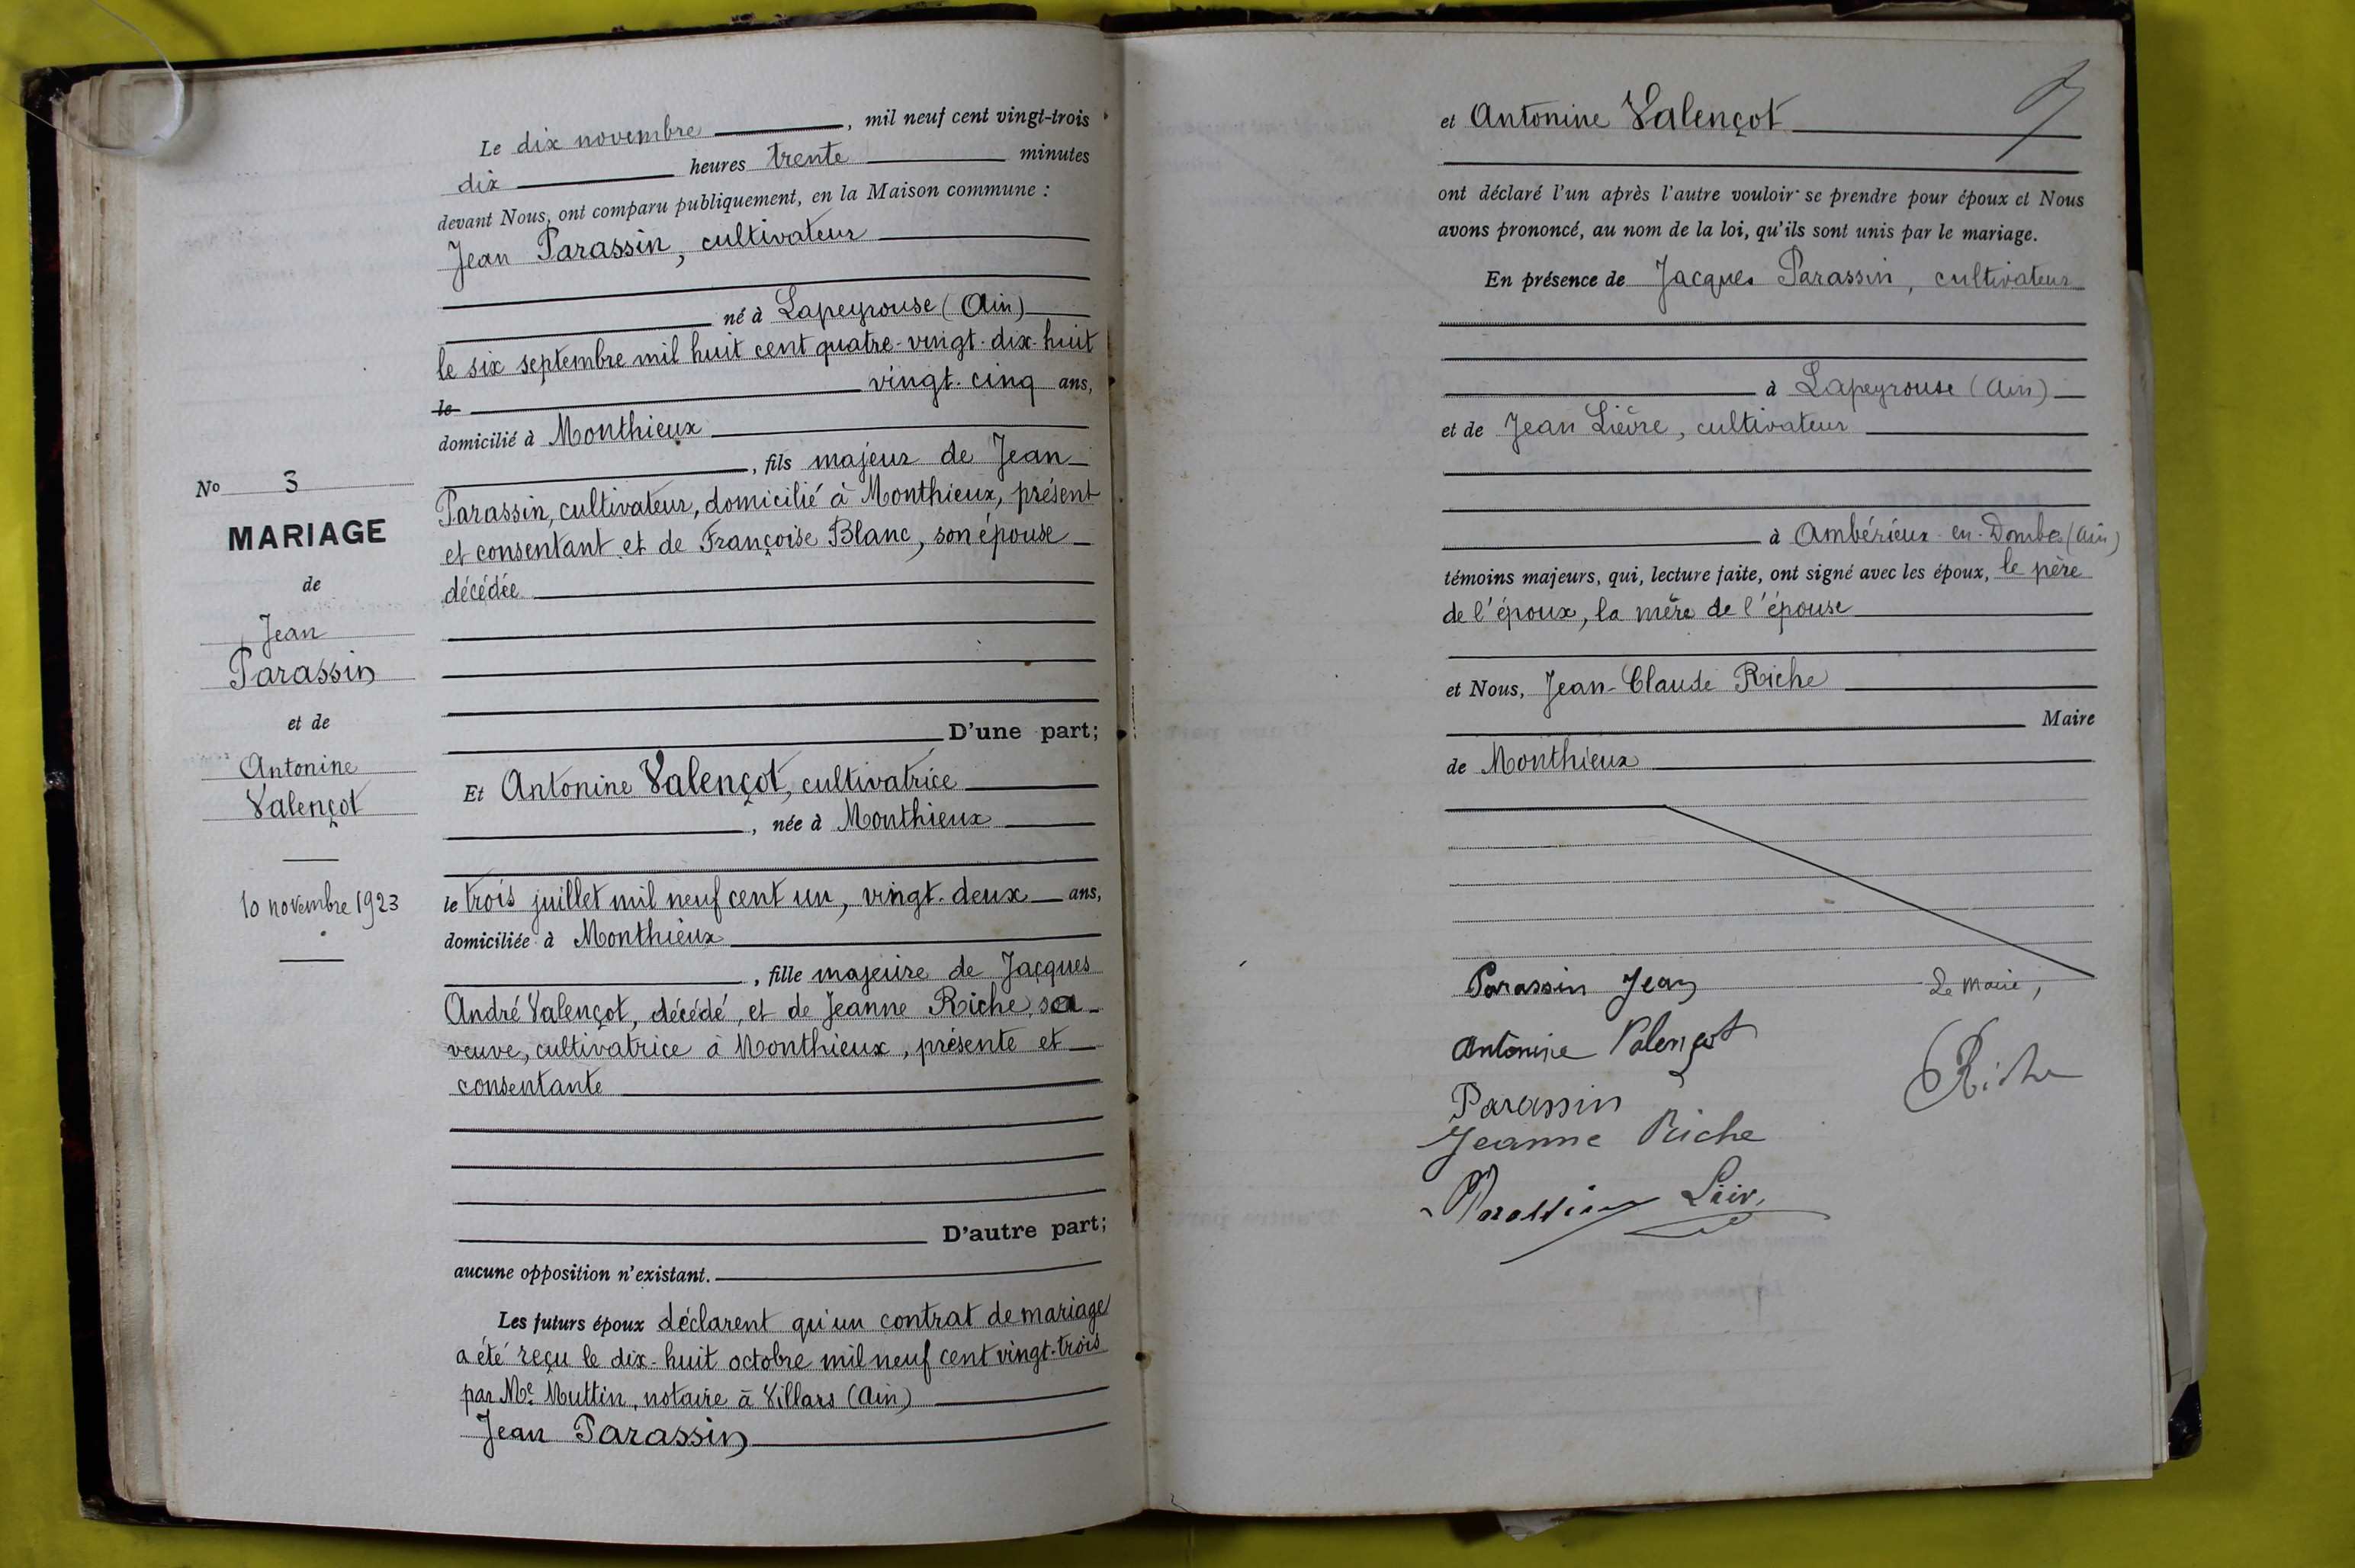 Le dix novembre, mil neuf cent vingt-trois
dix heures trente minutes
devant Nous, ont comparu publiquement, en la Maison commune :
Jean Parassin, cultivateur
né à Lapeyrouse (Ain)
le six septembre mil huit cent quatre-vingt-dix-huit
le vingt-cinq ans,
domicilié à Monthieux
, fils majeur de Jean
Parassin, cultivateur, domicilié à Monthieux, présent
et consentant et de Françoise Blanc, son épouse
décédée
D'une part;
Et Antonine Valençot, cultivatrice
, née à Monthieux
le trois juillet mil neuf cent un, vingt-deux ans,
domiciliée à Monthieux
, fille majeure de Jacques
André Valençot, décédé, et de Jeanne Riche, sa
veuve, cultivatrice à Monthieux, présente et
consentante
D'autre part;
aucune opposition n'existant.
Les futurs époux déclarent qu'un contrat de mariage
a été reçu le dix-huit octobre mil neuf cent vingt-trois
par Me Muttin, notaire à Villars (Ain)
Jean Parassin
No 3
MARIAGE
de
Jean
Parassin
et de
Antonine
Valençot
10 novembre 1923
et Antonine Valençot
ont déclaré l'un après l'autre vouloir se prendre pour époux et Nous
avons prononcé, au nom de la loi, qu'ils sont unis par le mariage.
En présence de Jacques Parassin, cultivateur
à Lapeyrouse (Ain)
et de Jean Lièvre, cultivateur
à Ambérieux-en-Dombes (Ain)
témoins majeurs, qui, lecture faite, ont signé avec les époux, le père
de l'époux, la mère de l'épouse
et Nous, Jean-Claude Riche
Maire
de Monthieux
Parassin Jean
Le Maire,
Antonine Valençot
Riche
Parassin
Jeanne Riche
Parassin